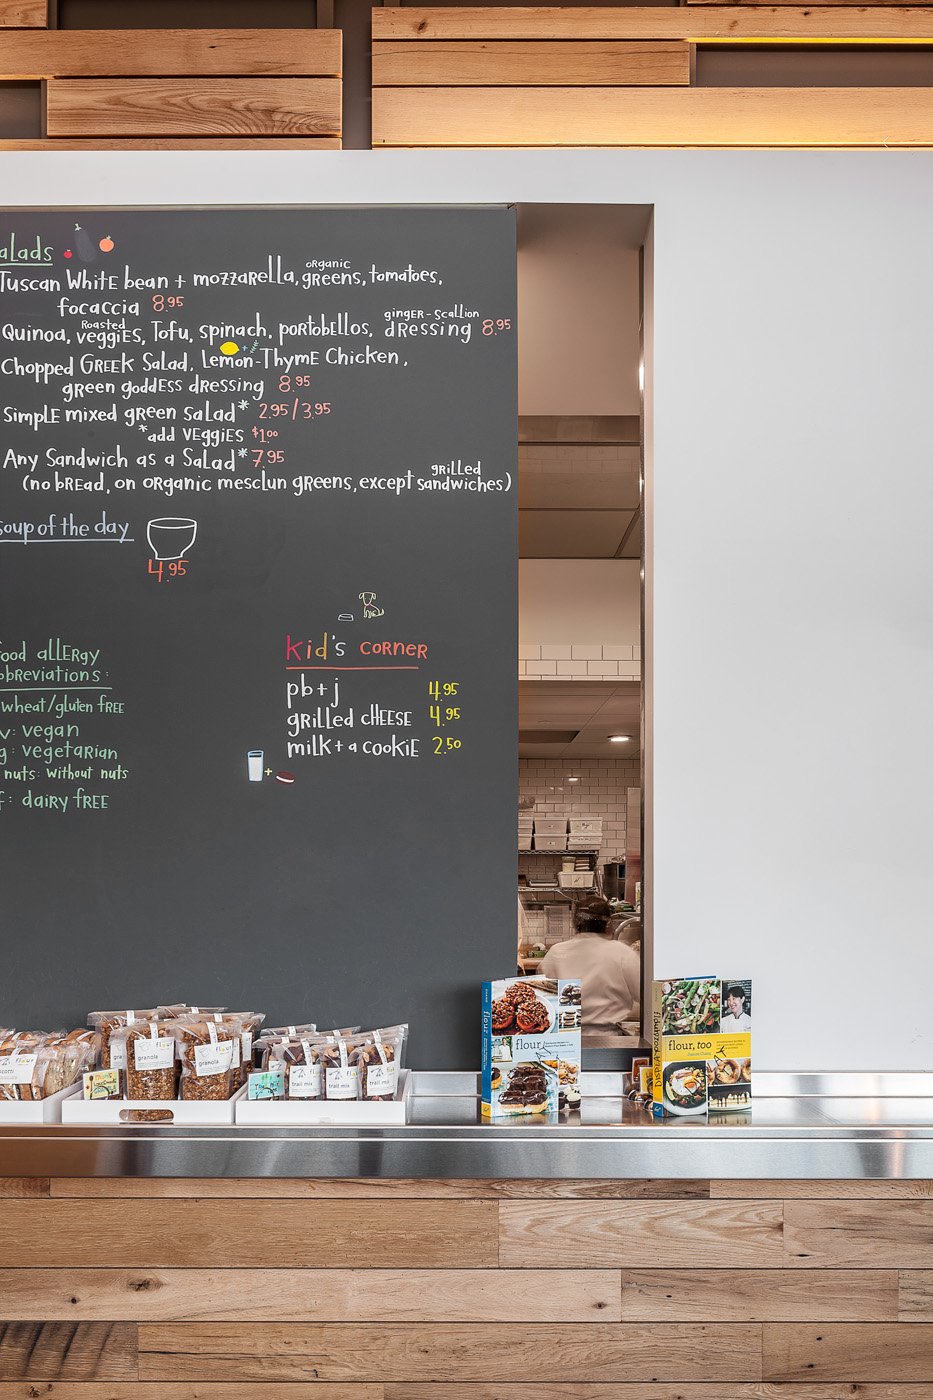 alads
Tuscan White bean + mozzarella, organic greens, tomatoes,
focaccia 8.95
Quinoa, Roasted veggies, Tofu, spinach, portobellos, ginger-scallion dressing 8.95
Chopped Greek Salad, Lemon-Thyme Chicken,
green goddess dressing 8.95
Simple mixed green Salad* 2.95/3.95
*add veggies $1.00
Any Sandwich as a Salad* 7.95
(no bread, on organic mesclun greens, except grilled sandwiches)
soup of the day
4.95
food allergy
bbreviations:
wheat/gluten free
v: vegan
g: vegetarian
nuts: without nuts
f: dairy free
kid's corner
pb+j 4.95
grilled cheese 4.95
milk + a cookie 2.50
granola
trail mix
trail mix
trail mix
flour
flour
flour, too